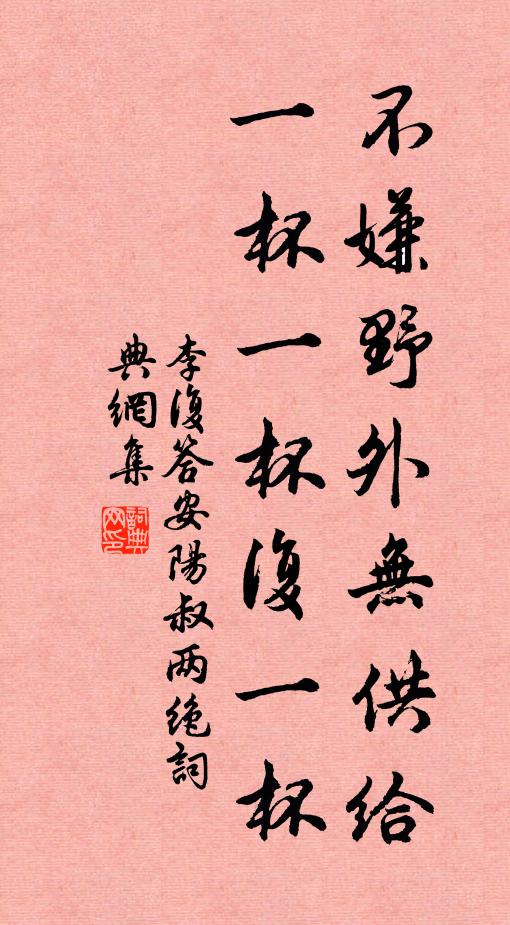 不嫌野外無供給
一杯一杯復一杯
李復答安陽叔两绝詞
典網集
詞典网印